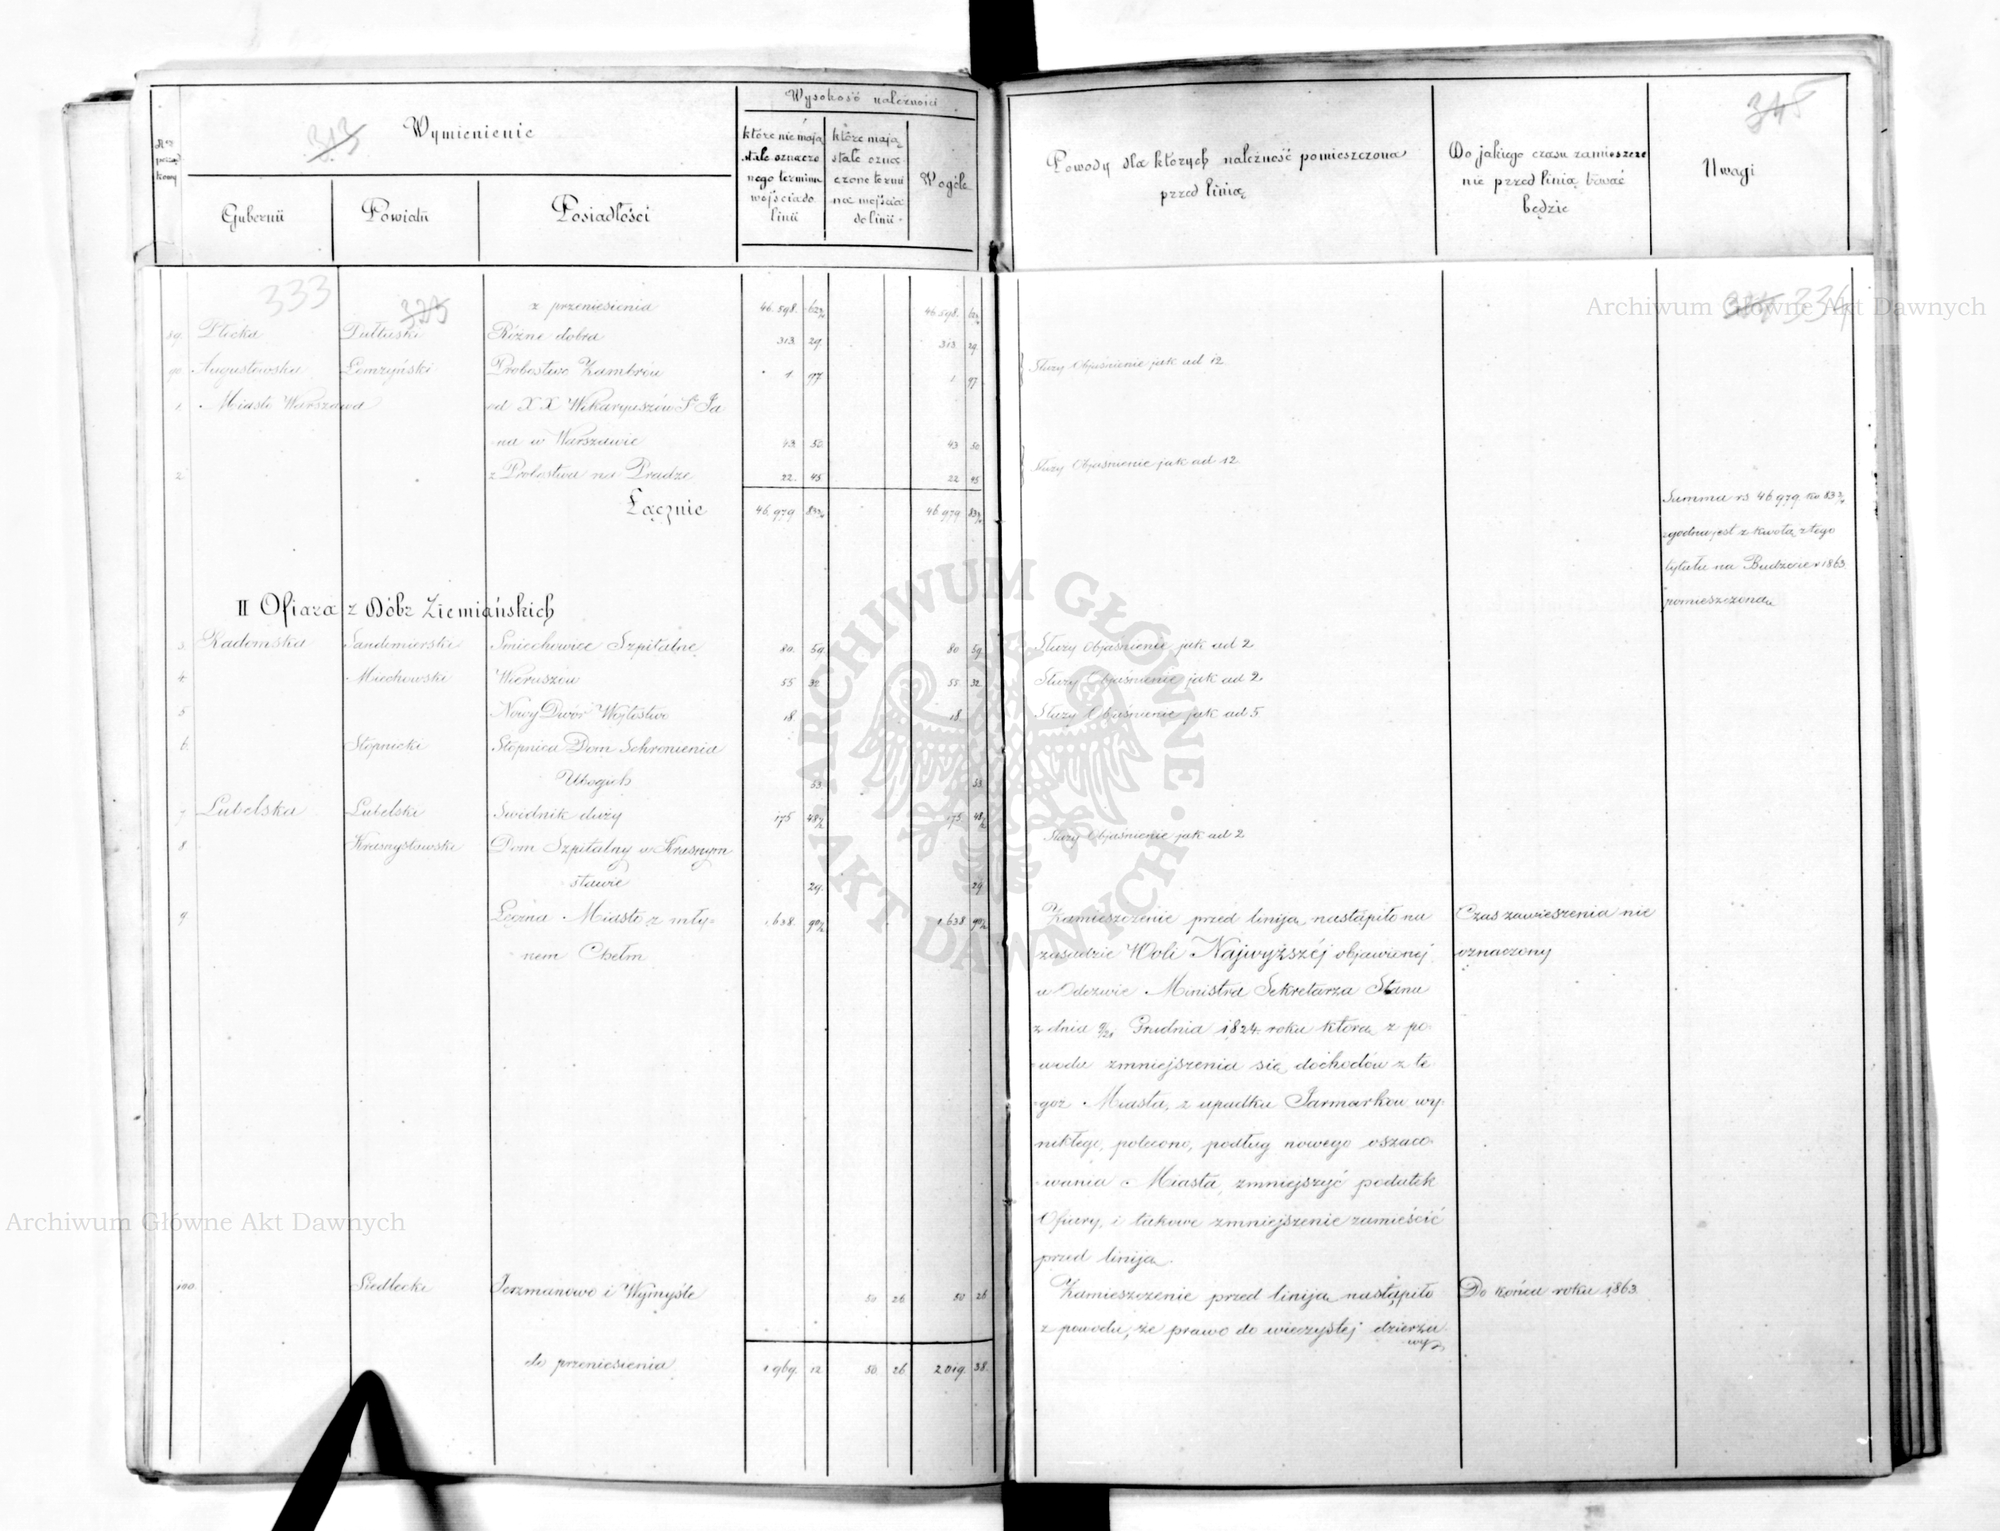 313
Wymienienie
Wysokość należności
Nor
porząd
kowy
Gubernii
Powiatu
Posiadłości
które nie mają
stale oznaczo
nego terminu
wejścia do
linii
które mają
stale ozna-
czone termi
na wejścia
do linii.
Wogóle
Powody dla których należność pomieszczona
przed linią
Do jakiego czasu zamieszcze
nie przed linią trwać
będzie
Uwagi
345
333
334
z przeniesienia 46.598. 62 46.598. 62
89. Płocka Pułtuski Różne dobra 313. 29. 313 29
90. Augustowska Łomżyński Probostwo Zambrów 1. 97 1 97
Służy Objaśnienie jak ad 12
1. Miasto Warszawa od XX Wikaryuszów Sgo Ja
na w Warszawie 43. 50. 43 50
2 z Probostwa na Pradze 22. 45 22 45
Służy Objaśnienie jak ad 12
Łącznie 46.979 83 46 979 83
Summa rs 46 979 ko 83
zgodna jest z kwotą z tego
tytułu na Budżecie r 1863
pomieszczoną
II Ofiara z Dóbr Ziemiańskich
3. Radomska Sandomierski Śmiechowice Szpitalne 80. 59. 80 59. Służy Objaśnienie jak ad 2
4 Miechowski Wieruszów 55 32 55. 32 Służy Objaśnienie jak ad 2
5 Nowy Dwór Wojtostwo 18. 18 Służy Objaśnienie jak ad 5
6. Stopnicki Stopnica Dom Schronienia
Ubogich 53. 53.
7 Lubelska Lubelski Swidnik duży 175 48½ 175 48½
8 Krasnystawski Dom Szpitalny w Krasnym
Służy Objaśnienie jak ad 2
stawie 29. 29
9 Łęczna Miasto z mły- 1.638. 90½ 1.638 90½
nem Chełm
Zamieszczenie przed liniją nastąpiło na
zasadzie Woli Najwyższéj objawionéj
w Odezwie Ministra Sekretarza Stanu
z dnia 9/21 Grudnia 1824 roku którą z po-
wodu zmniejszenia się dochodów z te
goż Miasta, z upadku Jarmarków wy-
nikłego, polecono, podług nowego oszaco-
wania Miasta, zmniejszyć podatek
Ofiary, i takowe zmniejszenie zamieścić
przed liniją.
Czas zawieszenia nie
oznaczony
100. Siedlecki Jerzmanowo i Wymyśle 50 26 50 26
Zamieszczenie przed liniją nastąpiło
z powodu, że prawo do wieczystej dzierża
wy
Do końca roku 1863.
do przeniesienia 1 969. 12 50. 26 2 019. 38.
ARCHIWUM GŁÓWNE AKT DAWNYCH
Archiwum Główne Akt Dawnych
Archiwum Główne Akt Dawnych